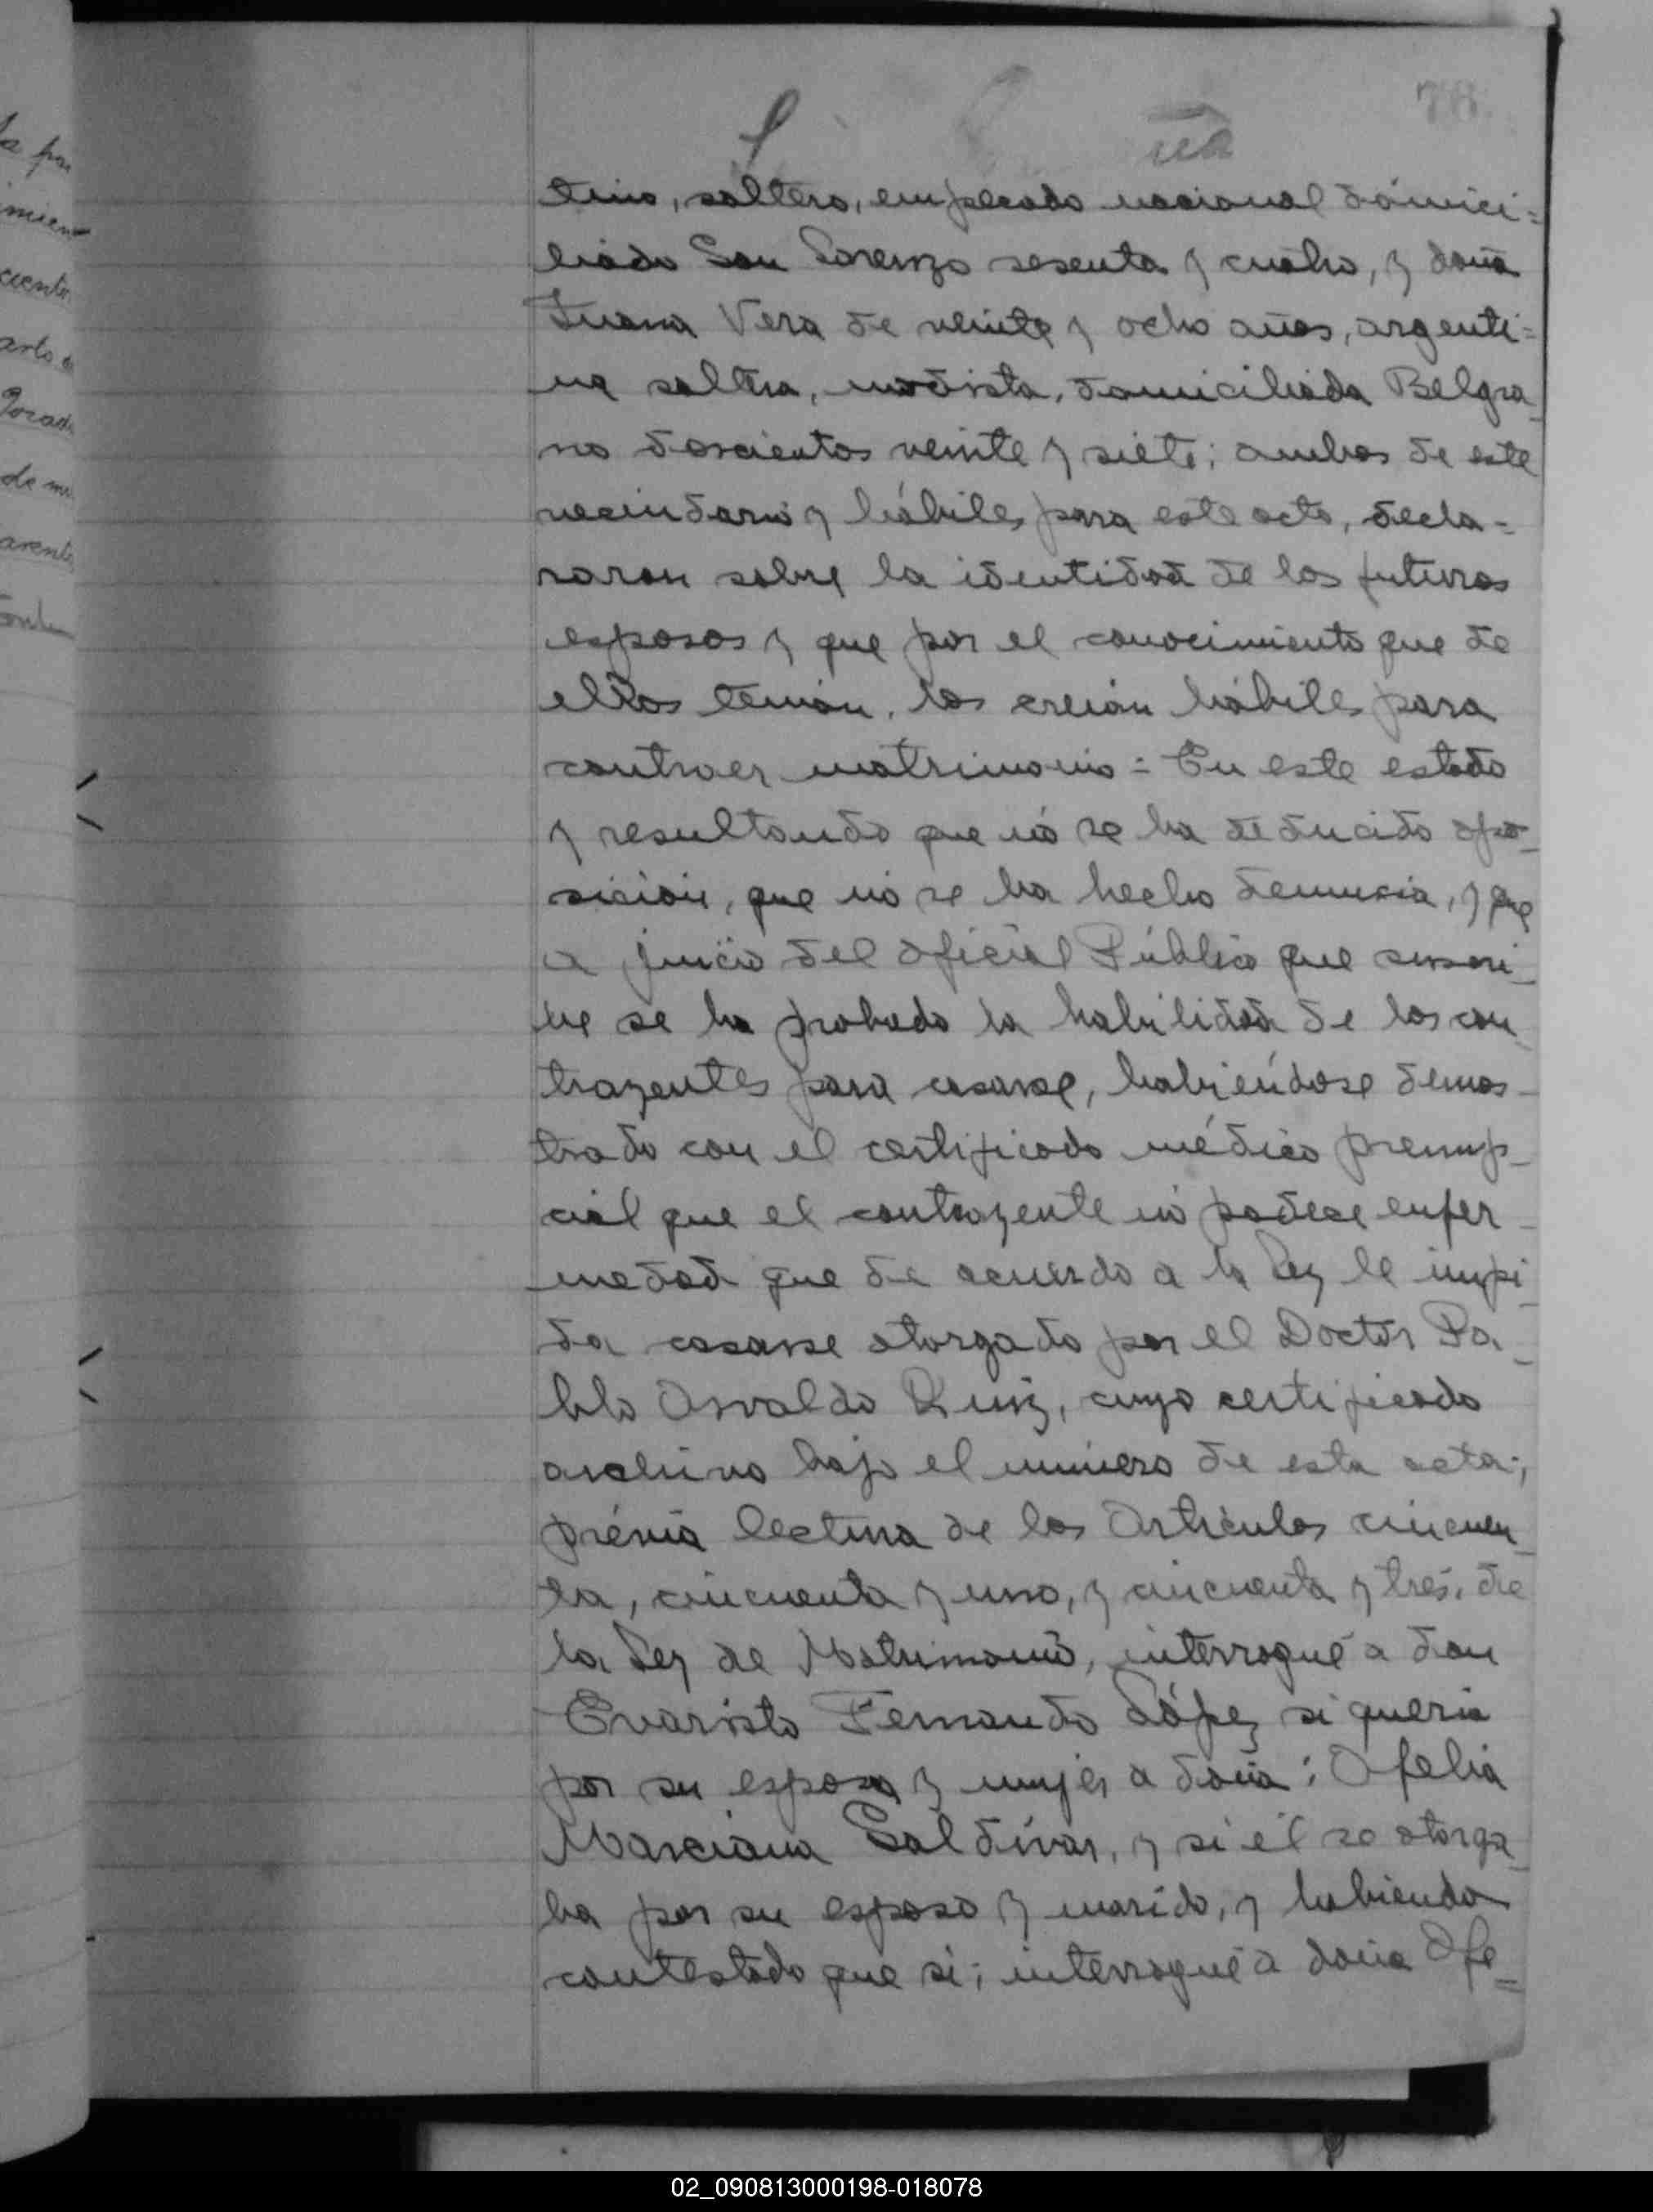 78.
tino, soltero, empleado nacional domici=
liado San Lorenzo sesenta y cuatro, y doña
Juana Vera de veinte y ocho años, argenti=
na soltera, modista, domiciliada Belgra_
no doscientos veinte y siete; ambos de este
vecindario y hábiles para este acto, decla=
raron sobre la identidad de los futuros
esposos y que por el conocimiento que de
ellos tenian, los creian hábiles para
contraer matrimonio = En este estado
y resultando que nó se ha deducido opo_
sición, que nó se ha hecho denuncia, y que
a juicio del Oficial Público que suscri_
be se ha probado la habilidad de los con_
trayentes para casarse, habiéndose demos_
trado con el certificado médico prenup_
cial que el contrayente nó padece enfer_
medad que de acuerdo a la Ley le impi_
da casarse otorgado por el Doctor Pa_
blo Osvaldo Ruiz, cuyo certificado
archivo bajo el número de esta acta;
prévia lectura de los Artículos cincuen_
ta, cincuenta y uno, y cincuenta y tres, de
la Ley de Matrimonio, interrogué a don
Evaristo Fernando López si queria
por su esposa y mujer a doña: Ofelia
Marciana Saldívar, y si él se otorga_
ba por su esposo y marido, y habiendo
contestado que sí; interrogué a doña Ofe=
la
mien
cuenta
de
02_090813000198-018078